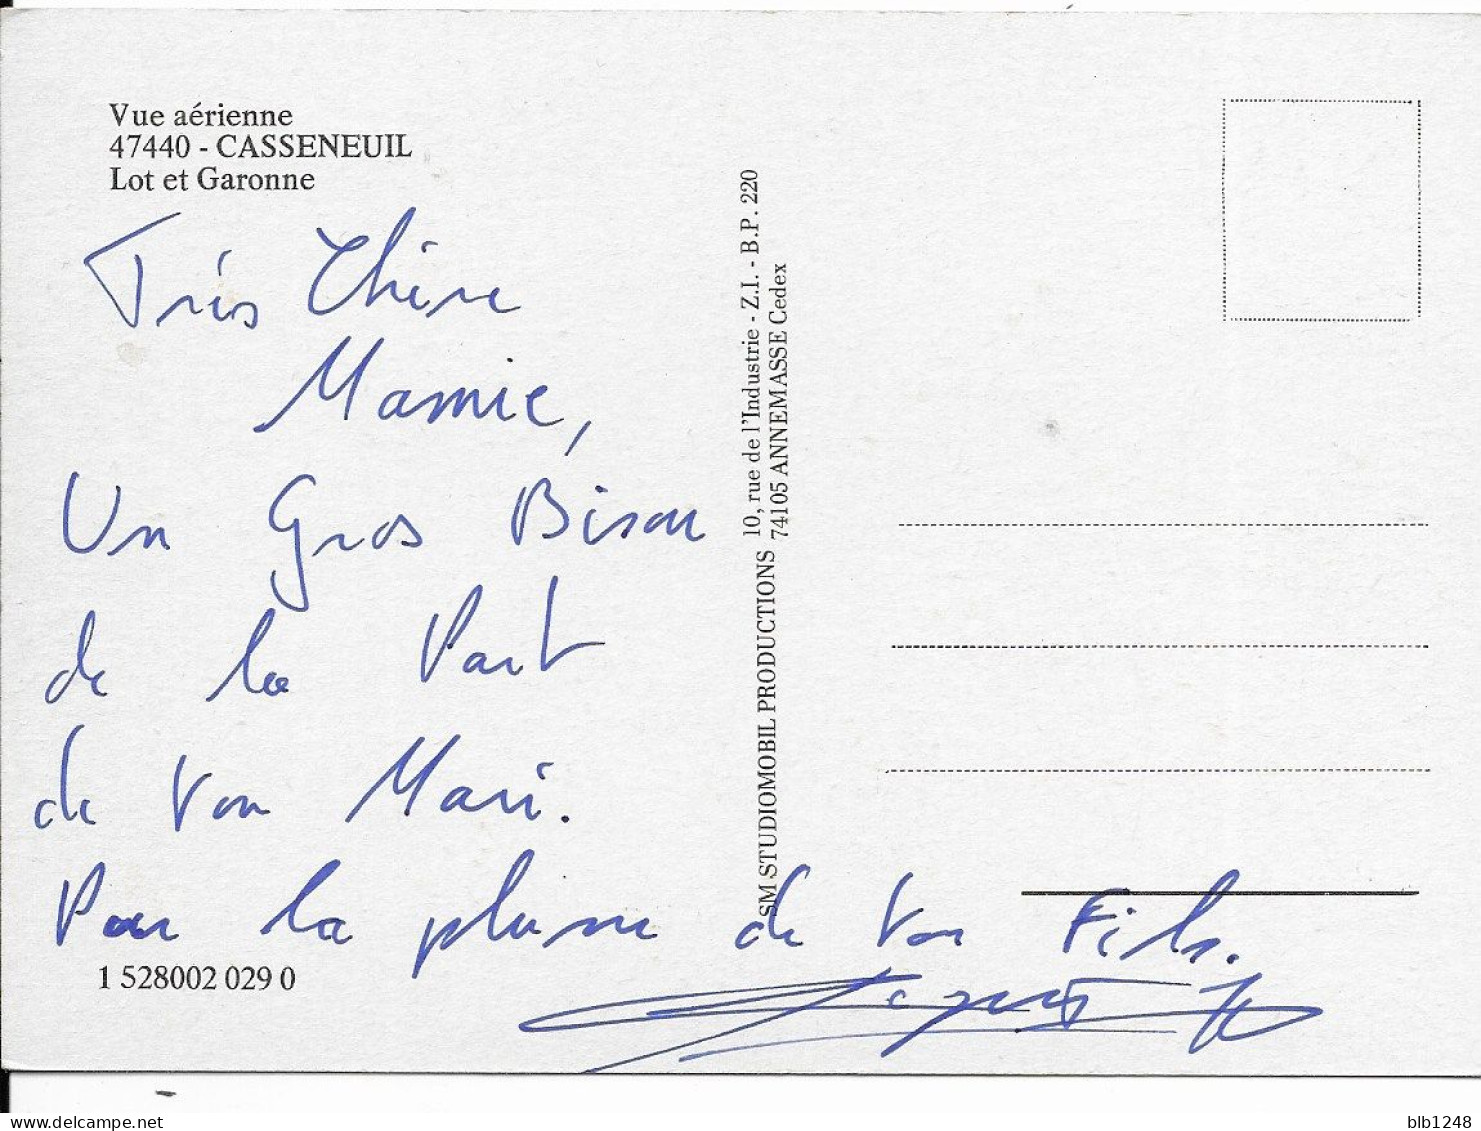 Vue aérienne
47440 - CASSENEUIL
Lot et Garonne
Très Chère
Mamie,
Un Gros Bisou
de la Part
de Ton Mari.
Par la plume de Ton Fils.
1 528002 029 0
SM STUDIOMOBIL PRODUCTIONS 10, rue de l'Industrie - Z.I. - B.P. 220
74105 ANNEMASSE Cedex
delcampe.net
blb1248